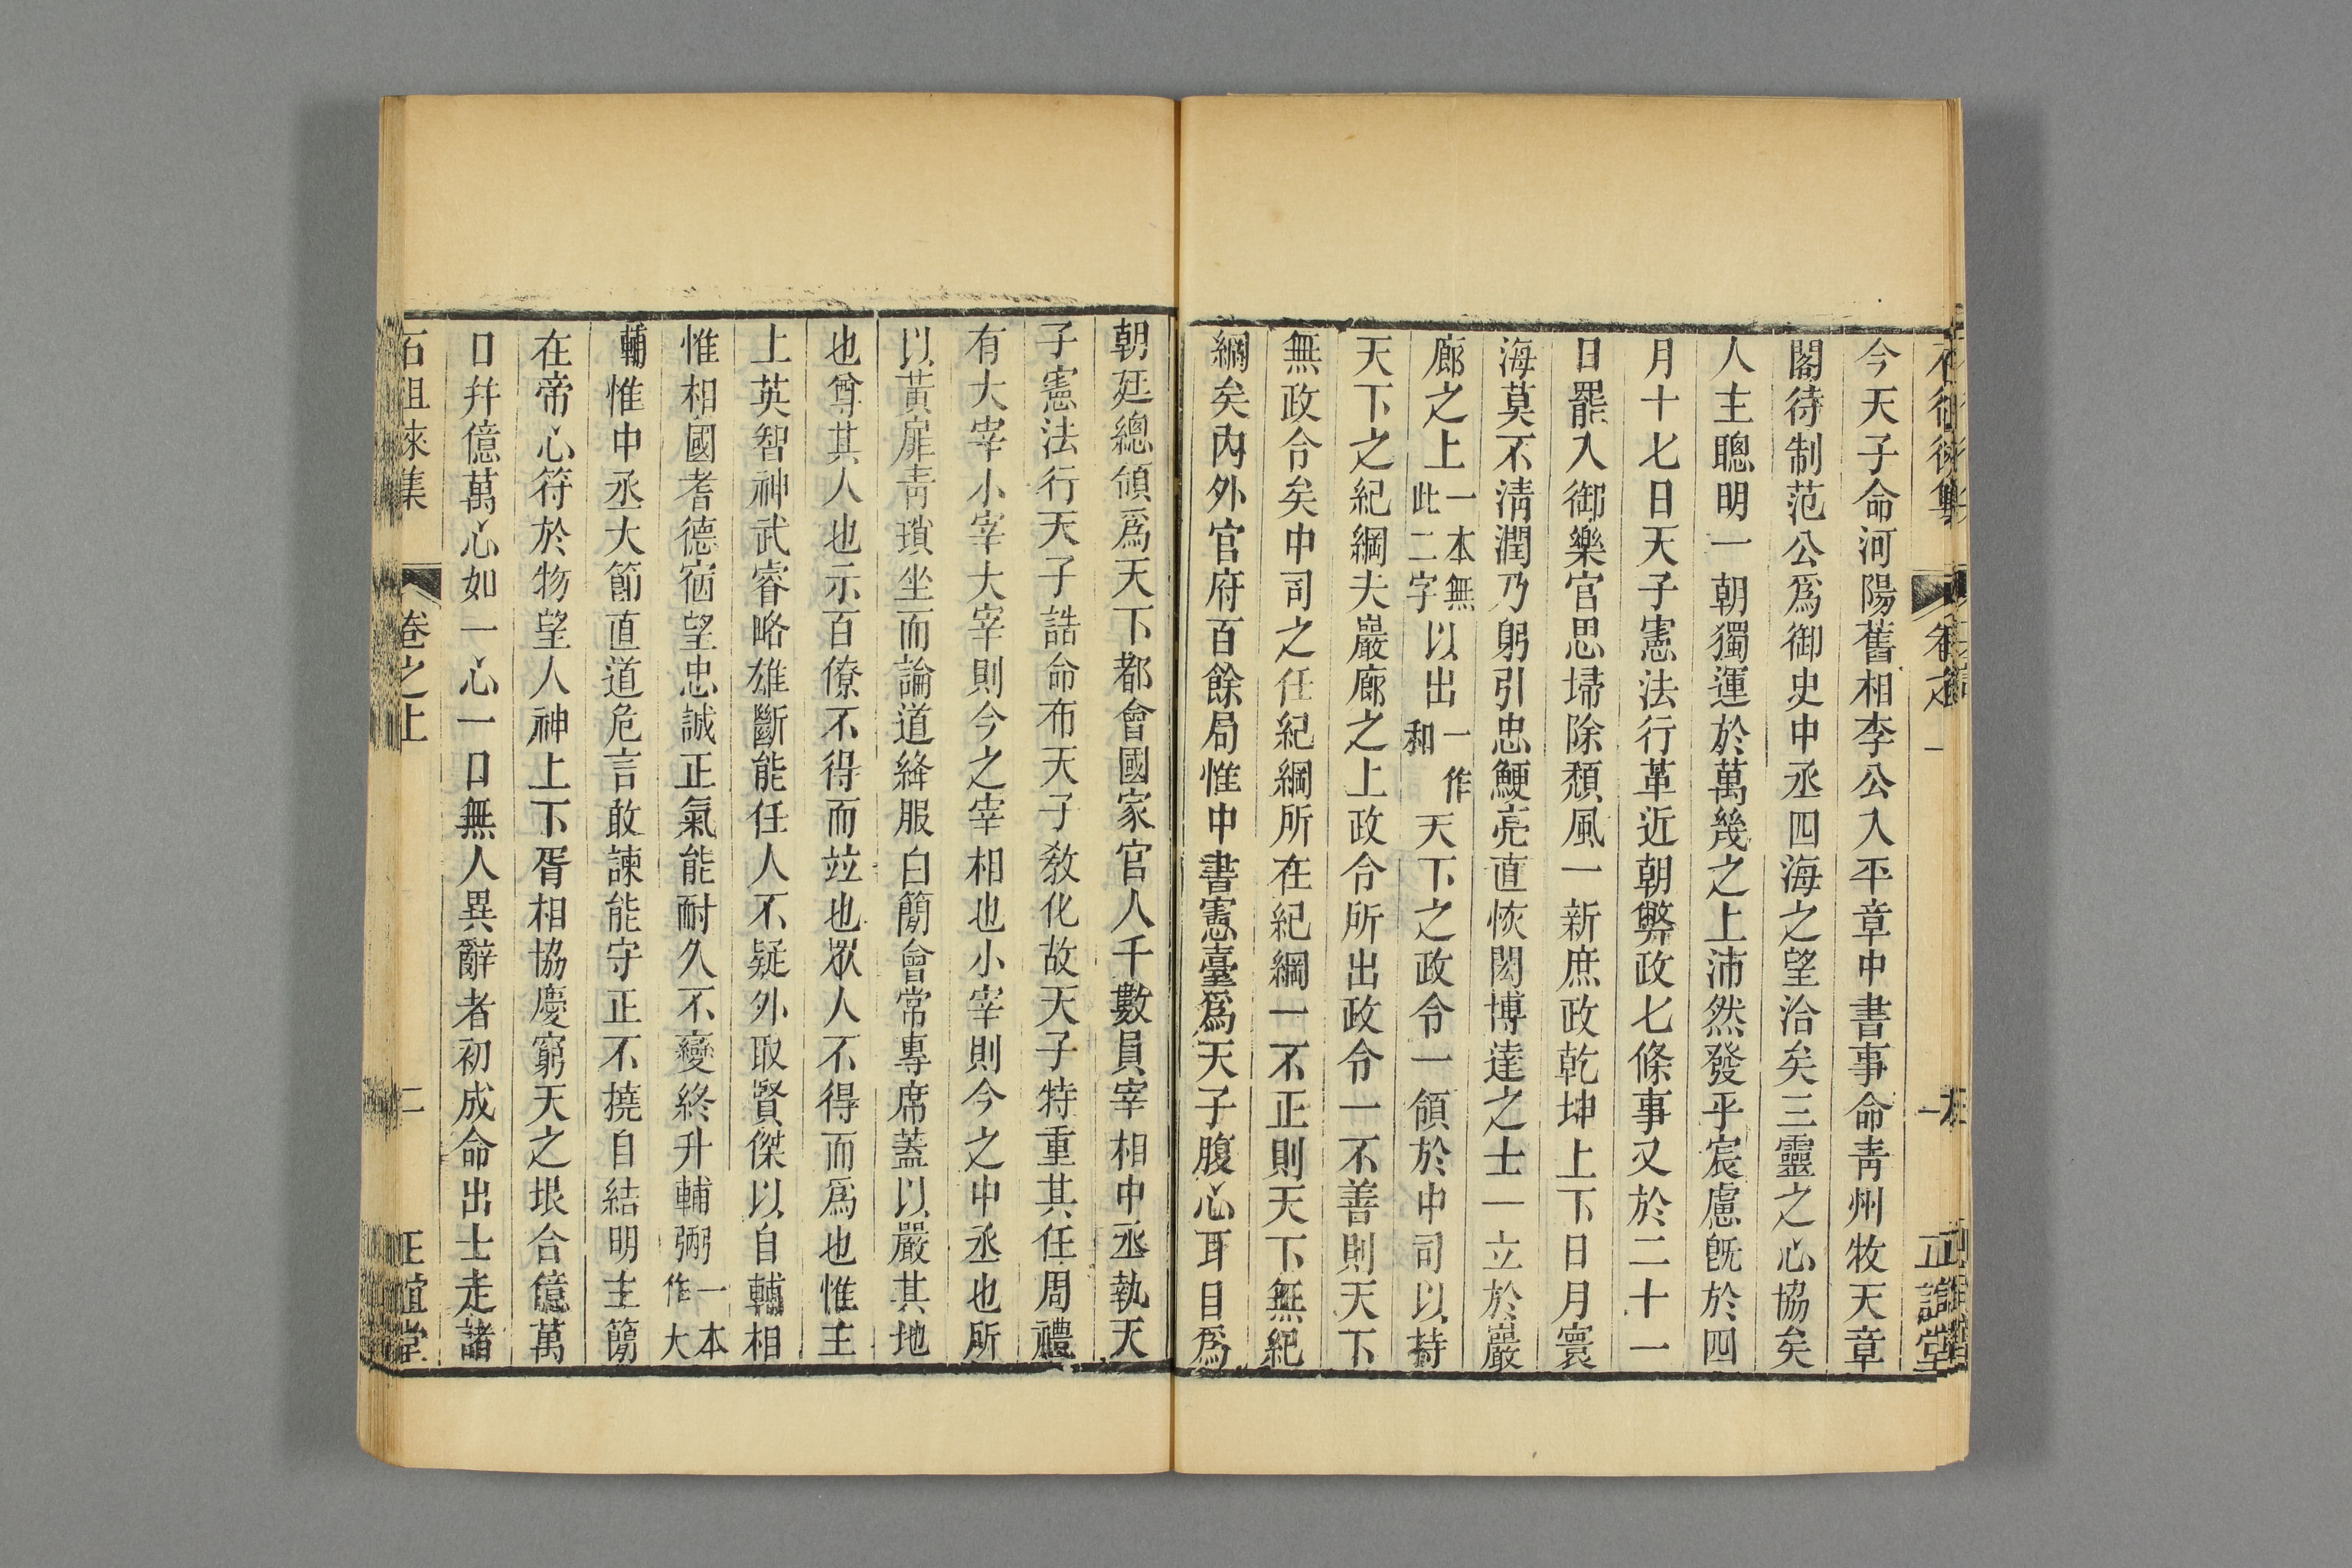 今天子命河陽舊相李公入平章中書事命靑州牧天章
閣待制范公爲御史中丞四海之望洽矣三靈之心協矣
人主聰明一朝獨運於萬幾之上沛然發乎宸慮旣於四
月十七日天子憲法行革近朝弊政七條事又於二十一
日罷入御樂官思埽除頹風一新庶政乾坤上下日月寰
海莫不淸潤乃躬引忠鯁亮直恢閎博達之士一立於巖
廊之上一本無此二字以出一作和天下之政令一領於中司以持
天下之紀綱夫巖廊之上政令所出政令一不善則天下
無政令矣中司之任紀綱所在紀綱一不正則天下無紀
綱矣內外官府百餘局惟中書憲臺爲天子腹心耳目爲
朝廷總領爲天下都會國家官人千數員宰相中丞執天
子憲法行天子誥命布天子敎化故天子特重其任周禮
有大宰小宰大宰則今之宰相也小宰則今之中丞也所
以黃扉靑瑣坐而論道絳服白簡會常專席蓋以嚴其地
也尊其人也示百僚不得而竝也眾人不得而爲也惟主
上英智神武睿略雄斷能任人不疑外取賢傑以自輔相
惟相國耆德宿望忠誠正氣能耐久不變終升輔弼一本作大
輔惟中丞大節直道危言敢諫能守正不撓自結明主簡
在帝心符於物望人神上下胥相協慶窮天之垠合億萬
口幷億萬心如一心一口無人異辭者初成命出士走諸
石徂徠集 卷之上 二 正誼堂